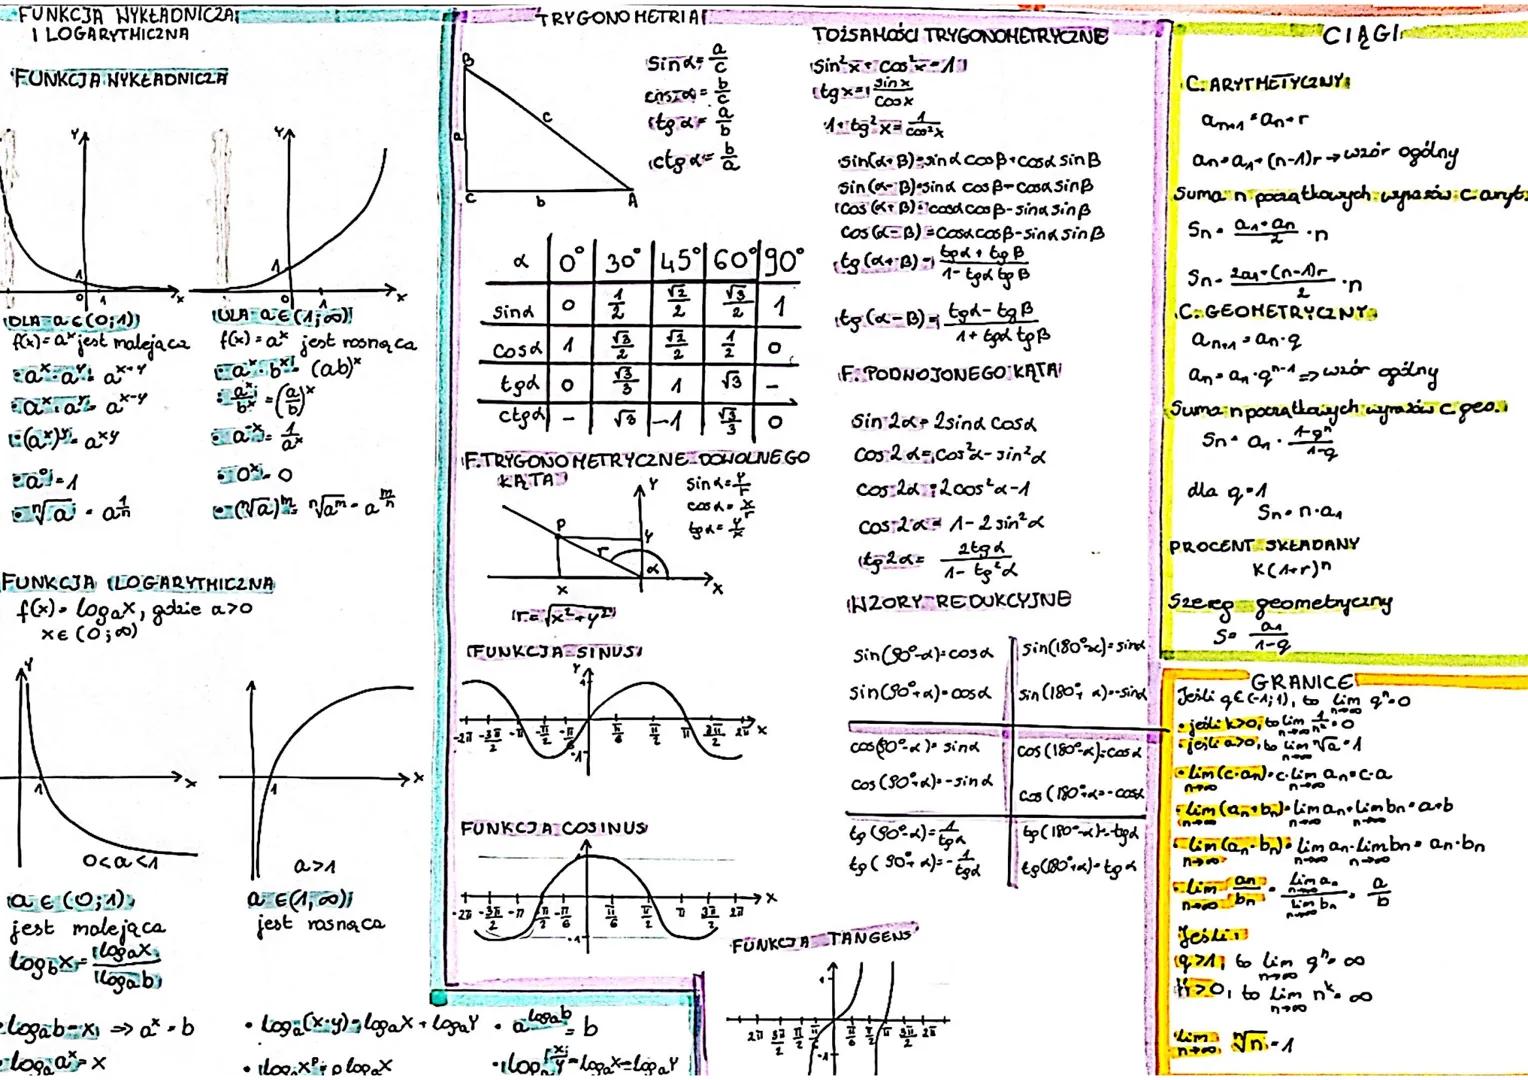 FUNKCJA WYKŁADNICZA
I LOGARYTMICZNA
FUNKCJA WYKŁADNICZA
Y
Y
1
0
1
x
1
0
1
x
DLA a ∈ (0;1)
f(x) = a^x jest malejąca
• a^x · a^y = a^x+y
• a^x : a^y = a^x-y
• (a^x)^y = a^xy
• a^0 = 1
• ⁿ√a = a^1/n
DLA a ∈ (1;∞)
f(x) = a^x jest rosnąca
• a^x · b^x = (ab)^x
• a^x/b^x = (a/b)^x
• a^-x = 1/a^x
• 0^x = 0
• (ⁿ√a)^m = ⁿ√a^m = a^m/n
FUNKCJA LOGARYTMICZNA
f(x) = log_a x, gdzie a>0
x ∈ (0;∞)
Y
1
x
0<a<1
1
x
a>1
a ∈ (0;1)
jest malejąca
log_b x = log_a x / log_a b
a ∈ (1;∞)
jest rosnąca
• log_a b = x ⇒ a^x = b
• log_a a^x = x
• log_a (x·y) = log_a x + log_a y
• log_a x^p = p log_a x
• a^log_a b = b
• log_a x/y = log_a x - log_a y
TRYGONOMETRIA
B
a
c
C
b
A
sin α = a/c
cos α = b/c
tg α = a/b
ctg α = b/a
α 0° 30° 45° 60° 90°
sinα 0 1/2 √2/2 √3/2 1
cosα 1 √3/2 √2/2 1/2 0
tgα 0 √3/3 1 √3 -
ctgα - √3 -1 √3/3 0
F. TRYGONOMETRYCZNE DOWOLNEGO
KĄTA
sin α = y/r
cos α = x/r
tg α = y/x
Y
P
Y
r
α
x
x
r = √x²+y²
FUNKCJA SINUS
Y
1
-2π -3π/2 -π -π/2 -π/6 π/6 π/2 π 3π/2 2π x
-1
FUNKCJA COSINUS
1
-2π -3π/2 -π -π/2 -π/6 π/6 π/2 π 3π/2 2π x
-1
FUNKCJA TANGENS
1
2π 3π/2 π/2 π/6 π/6 π/2 π 3π/2 2π
-1
TOŻSAMOŚCI TRYGONOMETRYCZNE
sin²x + cos²x = 1
tg x = sin x / cos x
1 + tg²x = 1/cos²x
sin(α+β) = sinα cosβ + cosα sinβ
sin(α-β) = sinα cosβ - cosα sinβ
cos(α+β) = cosα cosβ - sinα sinβ
cos(α-β) = cosα cosβ - sinα sinβ
tg(α+β) = tgα + tgβ / 1 - tgα tgβ
tg(α-β) = tgα - tgβ / 1 + tgα tgβ
F. PODWOJONEGO KĄTA
sin 2α = 2sinα cosα
cos 2α = cos²α - sin²α
cos 2α = 2cos²α - 1
cos 2α = 1 - 2 sin²α
tg 2α = 2tgα / 1 - tg²α
WZORY REDUKCYJNE
sin(90°-α) = cosα
sin(90°+α) = cosα
sin(180°-α) = sinα
sin(180°+α) = -sinα
cos(90°-α) = sinα
cos(90°+α) = -sinα
cos(180°-α) = cosα
cos(180°+α) = -cosα
tg(90°-α) = 1/tgα
tg(90°+α) = -1/tgα
tg(180°-α) = -tgα
tg(180°+α) = tgα
CIĄGI
C. ARYTMETYCZNY
a_n+1 = a_n + r
a_n = a_1 + (n-1)r → wzór ogólny
Suma n początkowych wyrazów c. aryt.
S_n = a_1 + a_n / 2 · n
S_n = 2a_1 + (n-1)r / 2 · n
C. GEOMETRYCZNY
a_n+1 = a_n · q
a_n = a_1 · q^n-1 ⇒ wzór ogólny
Suma n początkowych wyrazów c. geo.
S_n = a_1 · 1-q^n / 1-q
dla q = 1
S_n = n · a_1
PROCENT SKŁADANY
K(1+r)^n
Szereg geometryczny
S = a_1 / 1-q
GRANICE
Jeśli q ∈ (-1;1), to lim n→∞ q^n = 0
• jeśli k>0, to lim n→∞ 1/n^k = 0
• jeśli a>0, to lim n→∞ ⁿ√a = 1
• lim n→∞ (c·a_n) = c · lim n→∞ a_n = c·a
• lim n→∞ (a_n + b_n) = lim n→∞ a_n + lim n→∞ b_n = a+b
• lim n→∞ (a_n · b_n) = lim n→∞ a_n · lim n→∞ b_n = a_n · b_n
• lim n→∞ a_n/b_n = lim n→∞ a_n / lim n→∞ b_n = a/b
Jeśli:
q>1, to lim n→∞ q^n = ∞
k>0, to lim n→∞ n^k = ∞
lim n→∞ ⁿ√n = 1